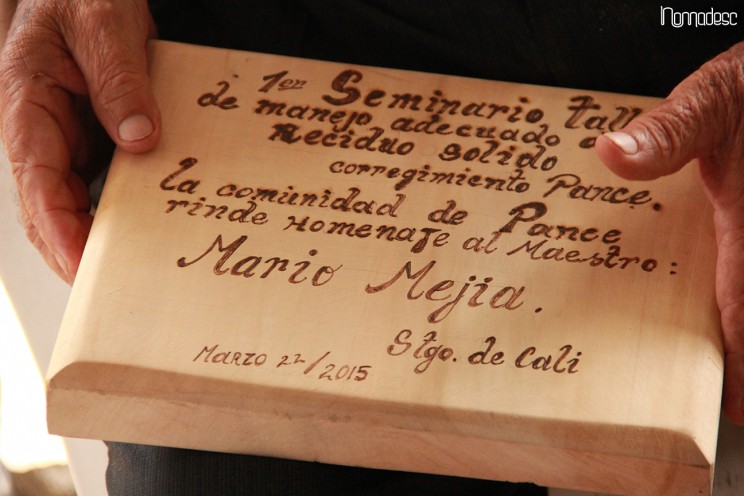 Nomadesc
1er Seminario tall
de manejo adecuado
Reciduo solido
corregimiento Pance.
la comunidad de Pance
rinde Homenaje al Maestro:
Mario Mejia.
Stgo. de Cali
Marzo 22/2015